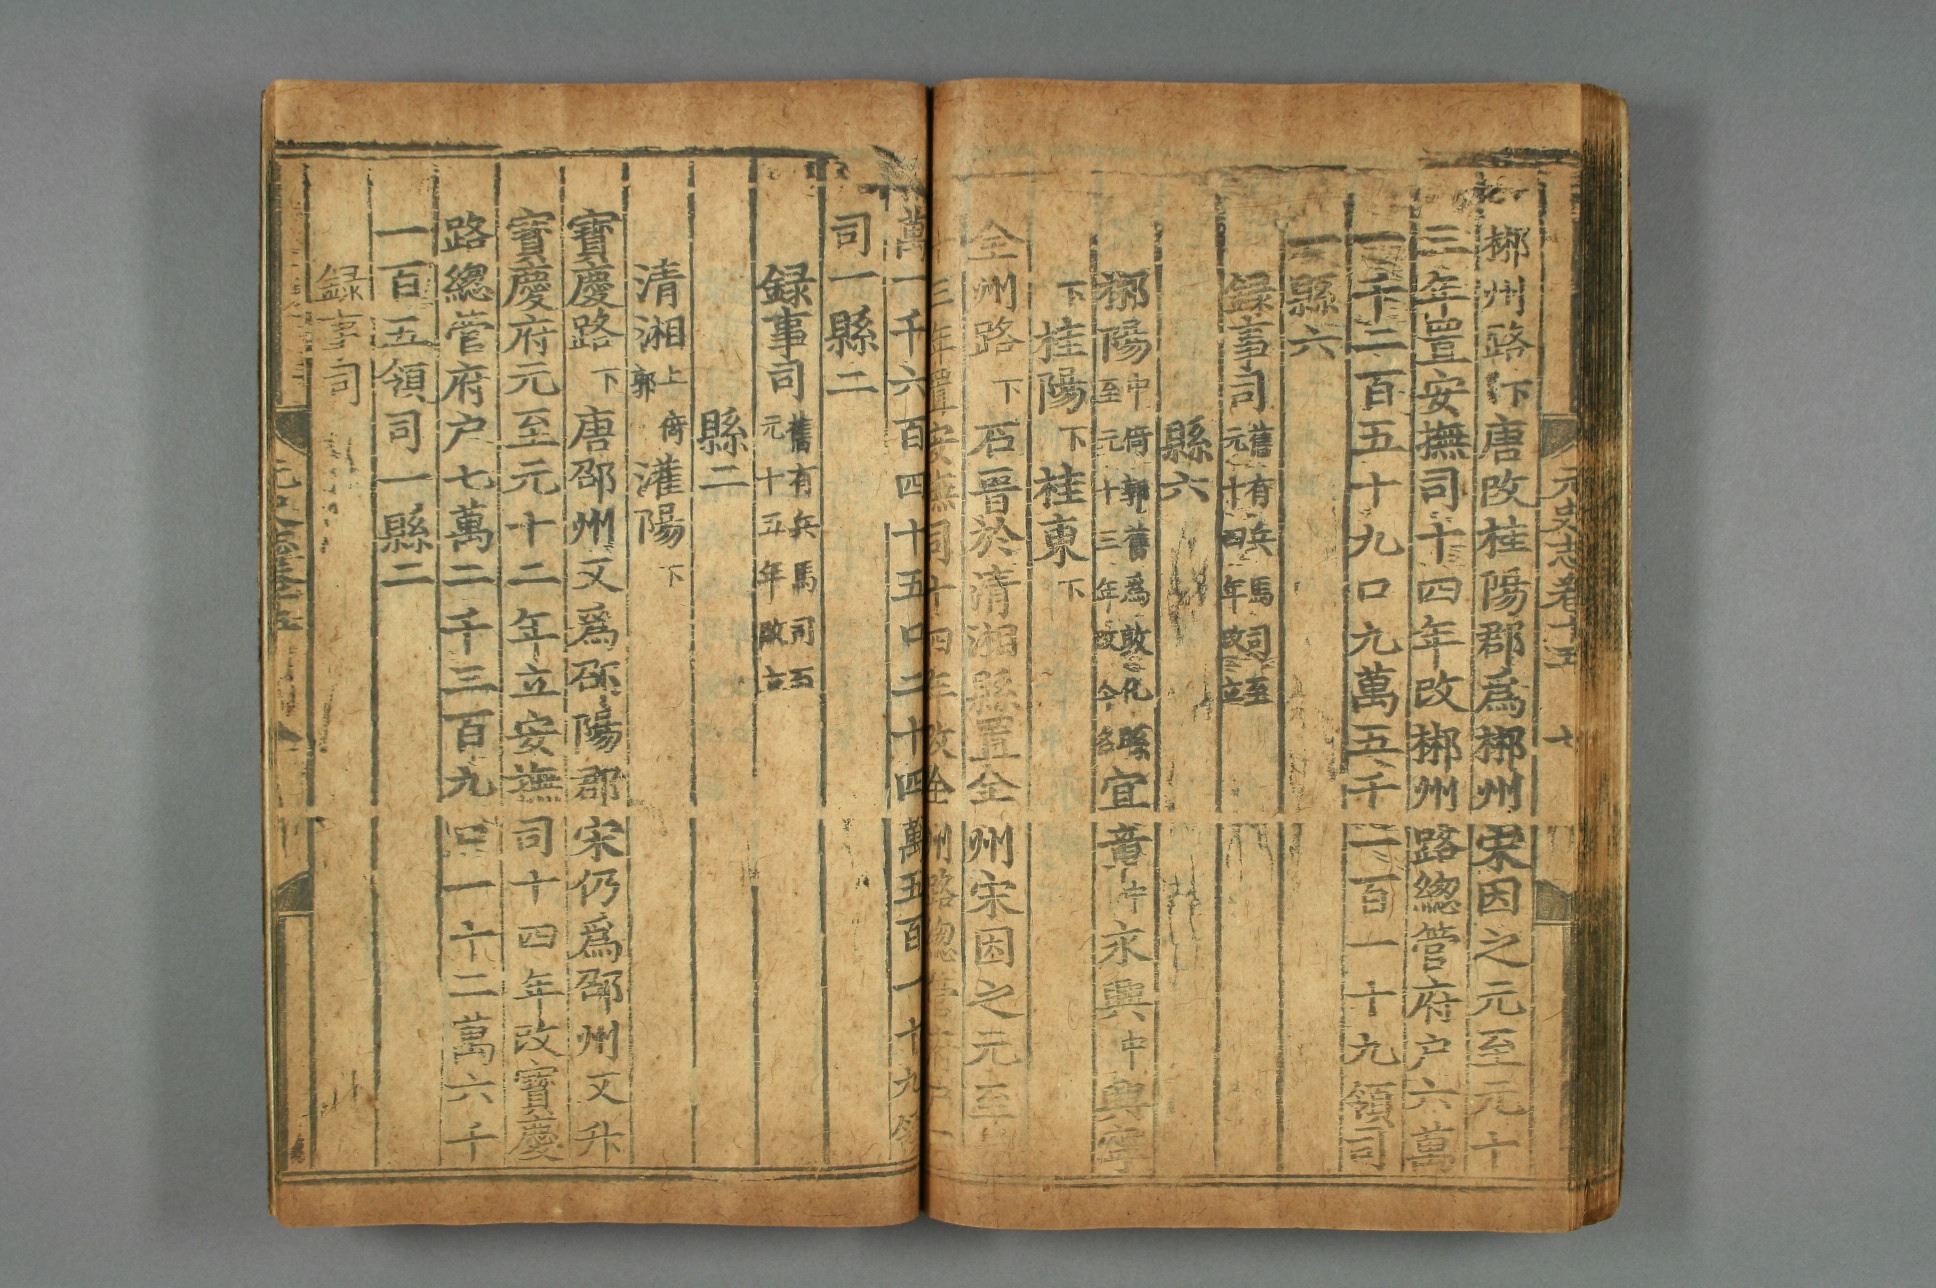 元史志卷十五 七
郴州路下唐改桂陽郡爲郴州宋因之元至元十
三年置安撫司十四年改郴州路總管府户六萬
一千二百五十九口九萬五千一百一十九領司
一縣六
録事司舊有兵馬司至元十四年改立
縣六
郴陽中倚郭舊爲敦化縣至元十三年改今名宜章中永興中興寧
下桂陽下桂東下
全州路下石晉於清湘縣置全州宋因之元至
十三年立安撫司十四年改全州路總管府户一
萬一千六百四十五口二十四萬五百一十九領
司一縣二
録事司舊有兵馬司至元十五年改立
縣二
清湘上倚郭灌陽下
寶慶路下唐邵州又爲邵陽郡宋仍爲邵州又升
寶慶府元至元十二年立安撫司十四年改寶慶
路總管府户七萬二千三百九口一十二萬六千
一百五領司一縣二
録事司